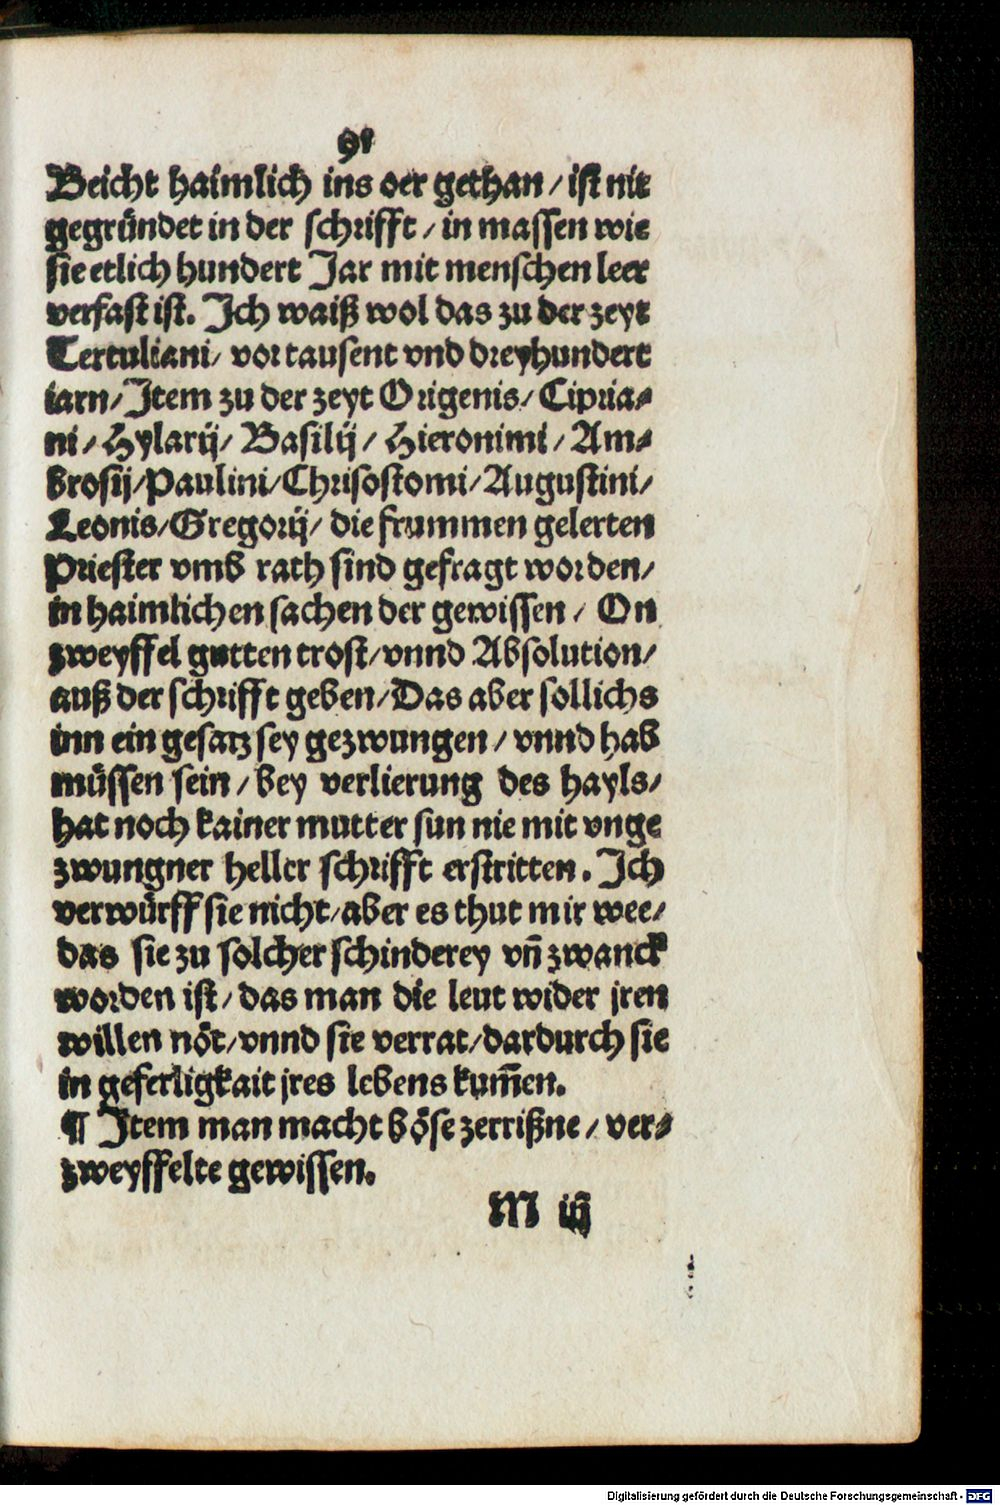 91
Beicht haimlich ins oer gethan / ist nit
gegründet in der schrifft / in massen wie
sie etlich hundert Jar mit menschen leer
verfast ist. Ich waiß wol das zu der zeyt
Tertuliani / vor tausent vnd dreyhundert
iarn / Item zu der zeyt Origenis / Cipria⸗
ni / Hylarij / Basilij / Hieronimi / Am⸗
brosij / Paulini / Chrisostomi / Augustini /
Leonis / Gregorij / die frummen gelerten
Priester vmb rath sind gefragt worden /
in haimlichen sachen der gewissen / On
zweyffel gutten trost / vnnd Absolution /
auß der schrifft geben / Das aber sollichs
inn ein gesatz sey gezwungen / vnnd hab
müssen sein / bey verlierung des hayls /
hat noch kainer mutter sun nie mit vnge
zwungner heller schrifft erstritten. Ich
verwürff sie nicht / aber es thut mir wee /
das sie zu solcher schinderey vn̄ zwanck
worden ist / das man die leut wider jren
willen nöt / vnnd sie verrat / dardurch sie
in geferligkait jres lebens kum̄en.
¶ Item man macht böse zerrißne / ver⸗
zweyffelte gewissen.
M iij
Digitalisierung gefördert durch die Deutsche Forschungsgemeinschaft - DFG